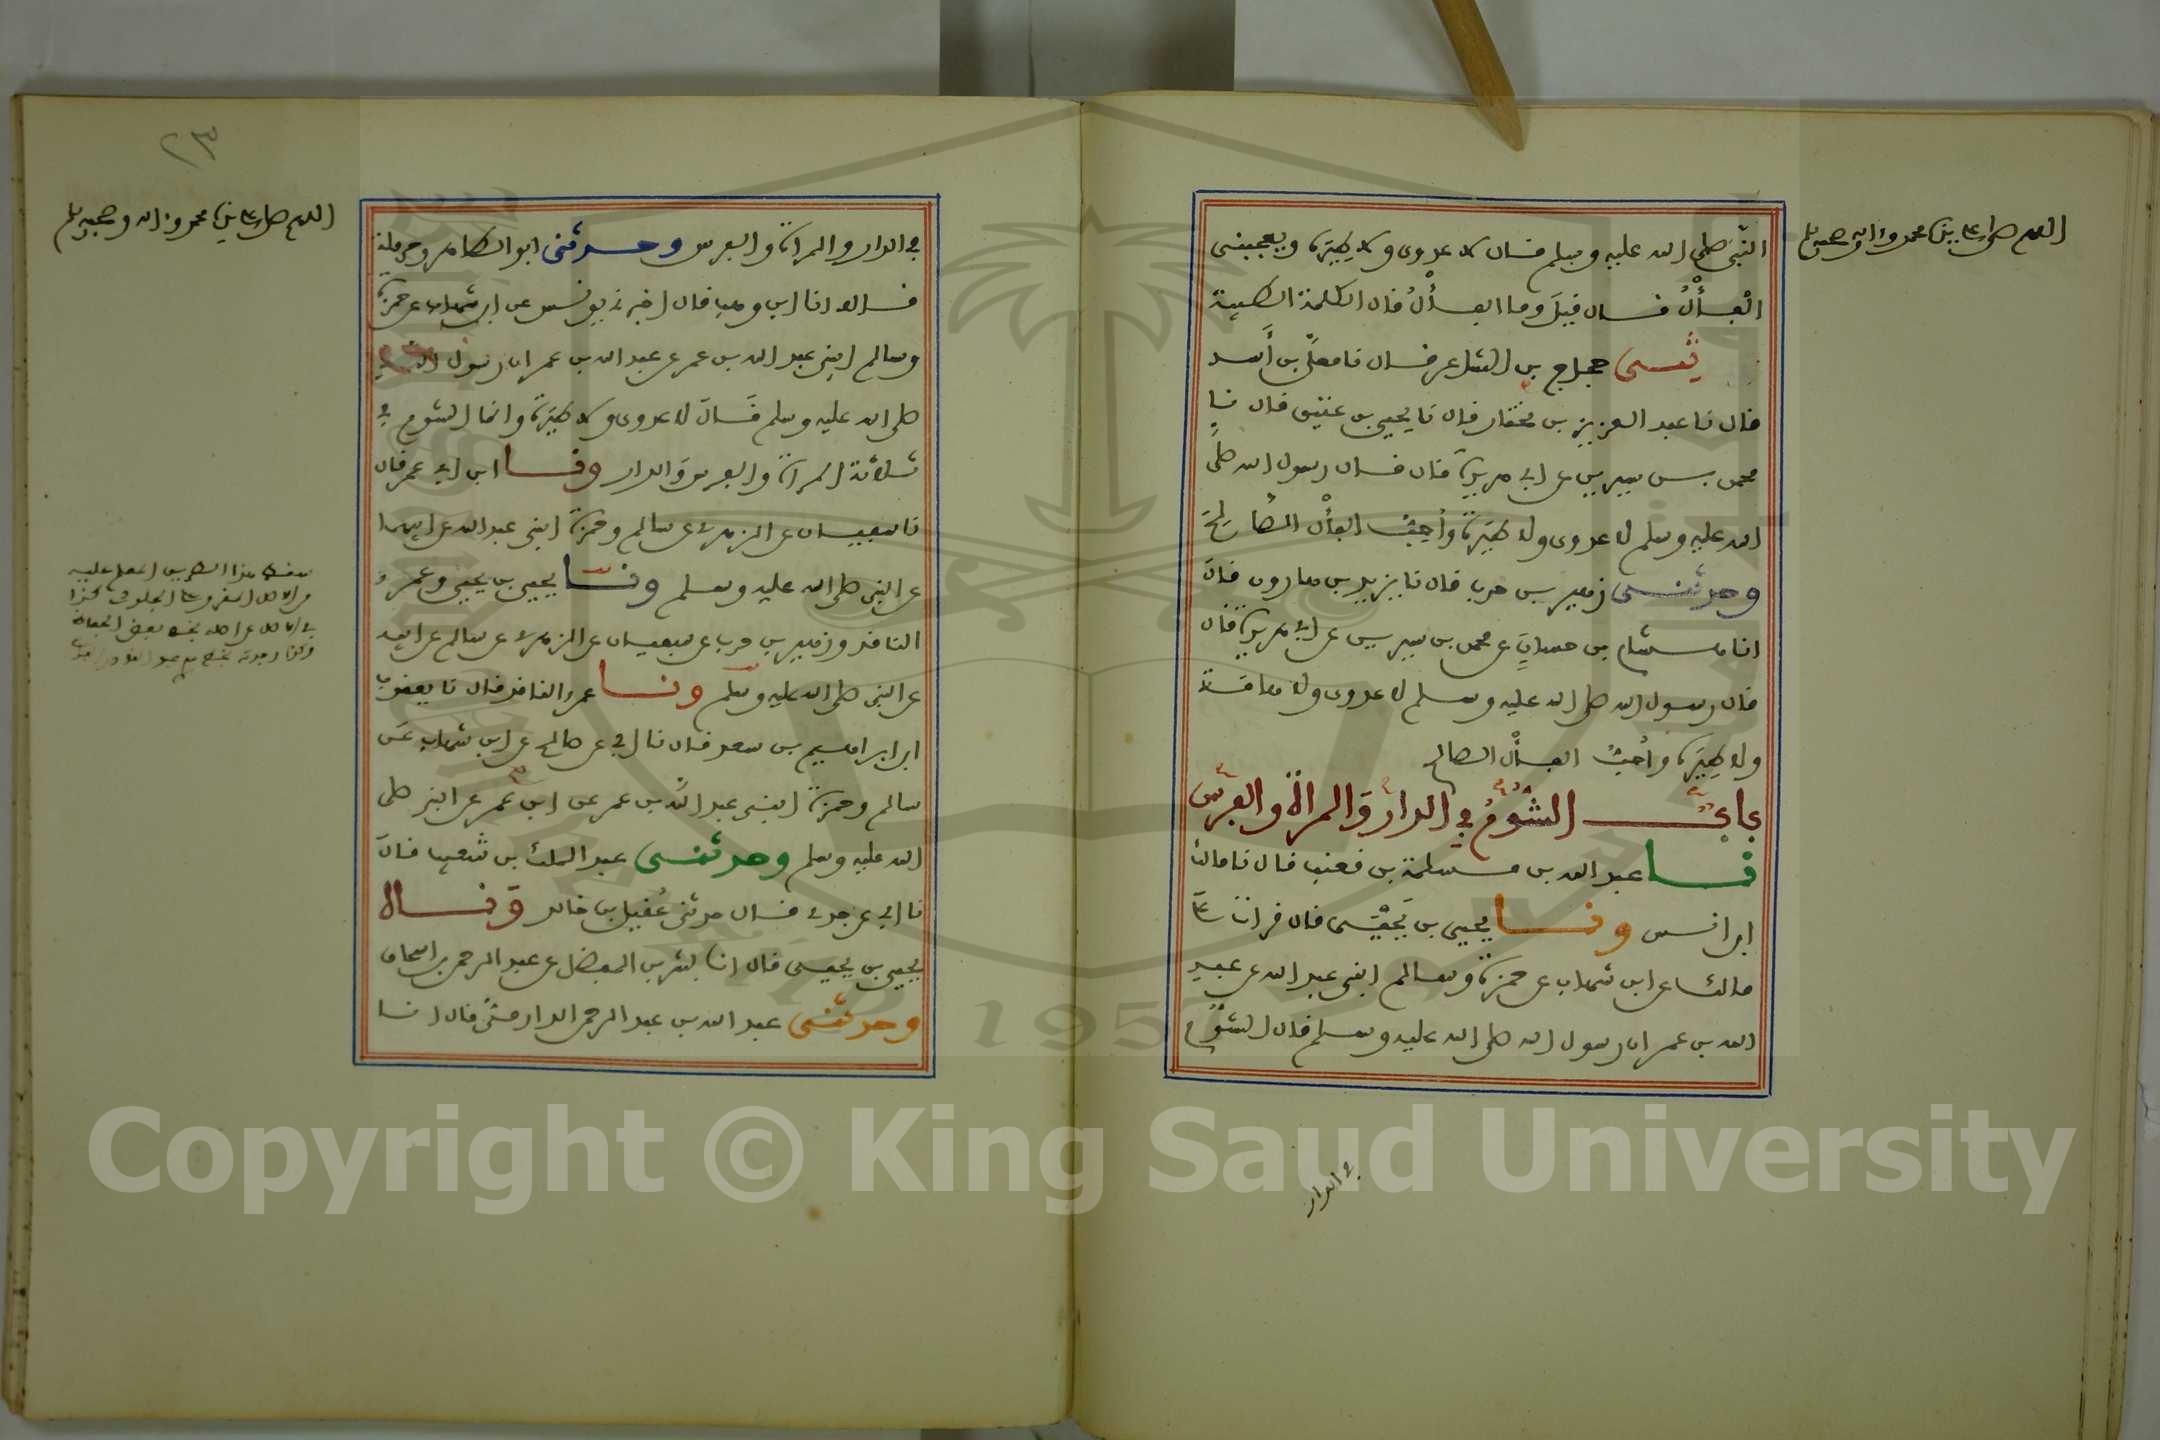 اللهم صل على نبينا محمد وءاله وصحبه وسلم
النبي صلى الله عليه وسلم قال لا عدوى ولا طيرة ويعجبني
الفأل قال قيل وما الفأل قال الكلمة الطيبة
ثني حجاج بن الشاعر قال نا معلى بن أسد
قال نا عبد العزيز بن مختار قال نا يحيى بن عتيق قال نا
محمد بن سيرين عن ابي هريرة قال قال رسول الله صلى
الله عليه وسلم لا عدوى ولا طيرة وأحب الفأل الصالح
وحدثني زهير بن حرب قال نا يزيد بن هارون قال
انا هشام بن حسان عن محمد بن سيرين عن ابي هريرة قال
قال رسول الله صلى الله عليه وسلم لا عدوى ولا هامة
ولا طيرة وأحب الفأل الصالح
باب الشؤم في الدار والمرأة والفرس
نا عبد الله بن مسلمة بن قعنب قال نا مالك
ابن انس ونا يحيى بن يحيى قال قرات على
مالك عن ابن شهاب عن حمزة وسالم ابني عبد الله عن عبد
الله بن عمر ان رسول الله صلى الله عليه وسلم قال الشؤم
في الدار
٢٣
اللهم صل على نبينا محمد وءاله وصحبه وسلم
في الدار والمراة والفرس وحدثني ابو الطاهر وحرملة
قالا انا ابن وهب قال اخبرني يونس عن ابن شهاب عن حمزة
وسالم ابني عبد الله بن عمر عن عبد الله بن عمر ان رسول الله
صلى الله عليه وسلم قال لا عدوى ولا طيرة وانما الشوم في
ثلاثة المراة والفرس والدار ونا ابن ابي عمر قال
نا سفيان عن الزهري عن سالم وحمزة ابني عبد الله عن ابيهما
عن النبي صلى الله عليه وسلم ونا يحيى بن يحيى وعمرو
الناقد وزهير بن حرب عن سفيان عن الزهري عن سالم عن ابيه
عن النبي صلى الله عليه وسلم ونا عمرو الناقد قال نا يعقوب
ابن ابراهيم بن سعد قال نا ابي عن صالح عن ابن شهاب عن
سالم وحمزة ابني عبد الله بن عمر عن ابن عمر عن النبي صلى
الله عليه وسلم وحدثني عبد الملك بن شعيب قال
نا ابي عن جدي قال حدثني عقيل بن خالد ونا
يحيى بن يحيى قال انا بشر بن المفضل عن عبد الرحمن بن اسحاق
وحدثني عبد الله بن عبد الرحمن الدارمي قال انا
Copyright © King Saud University
1957